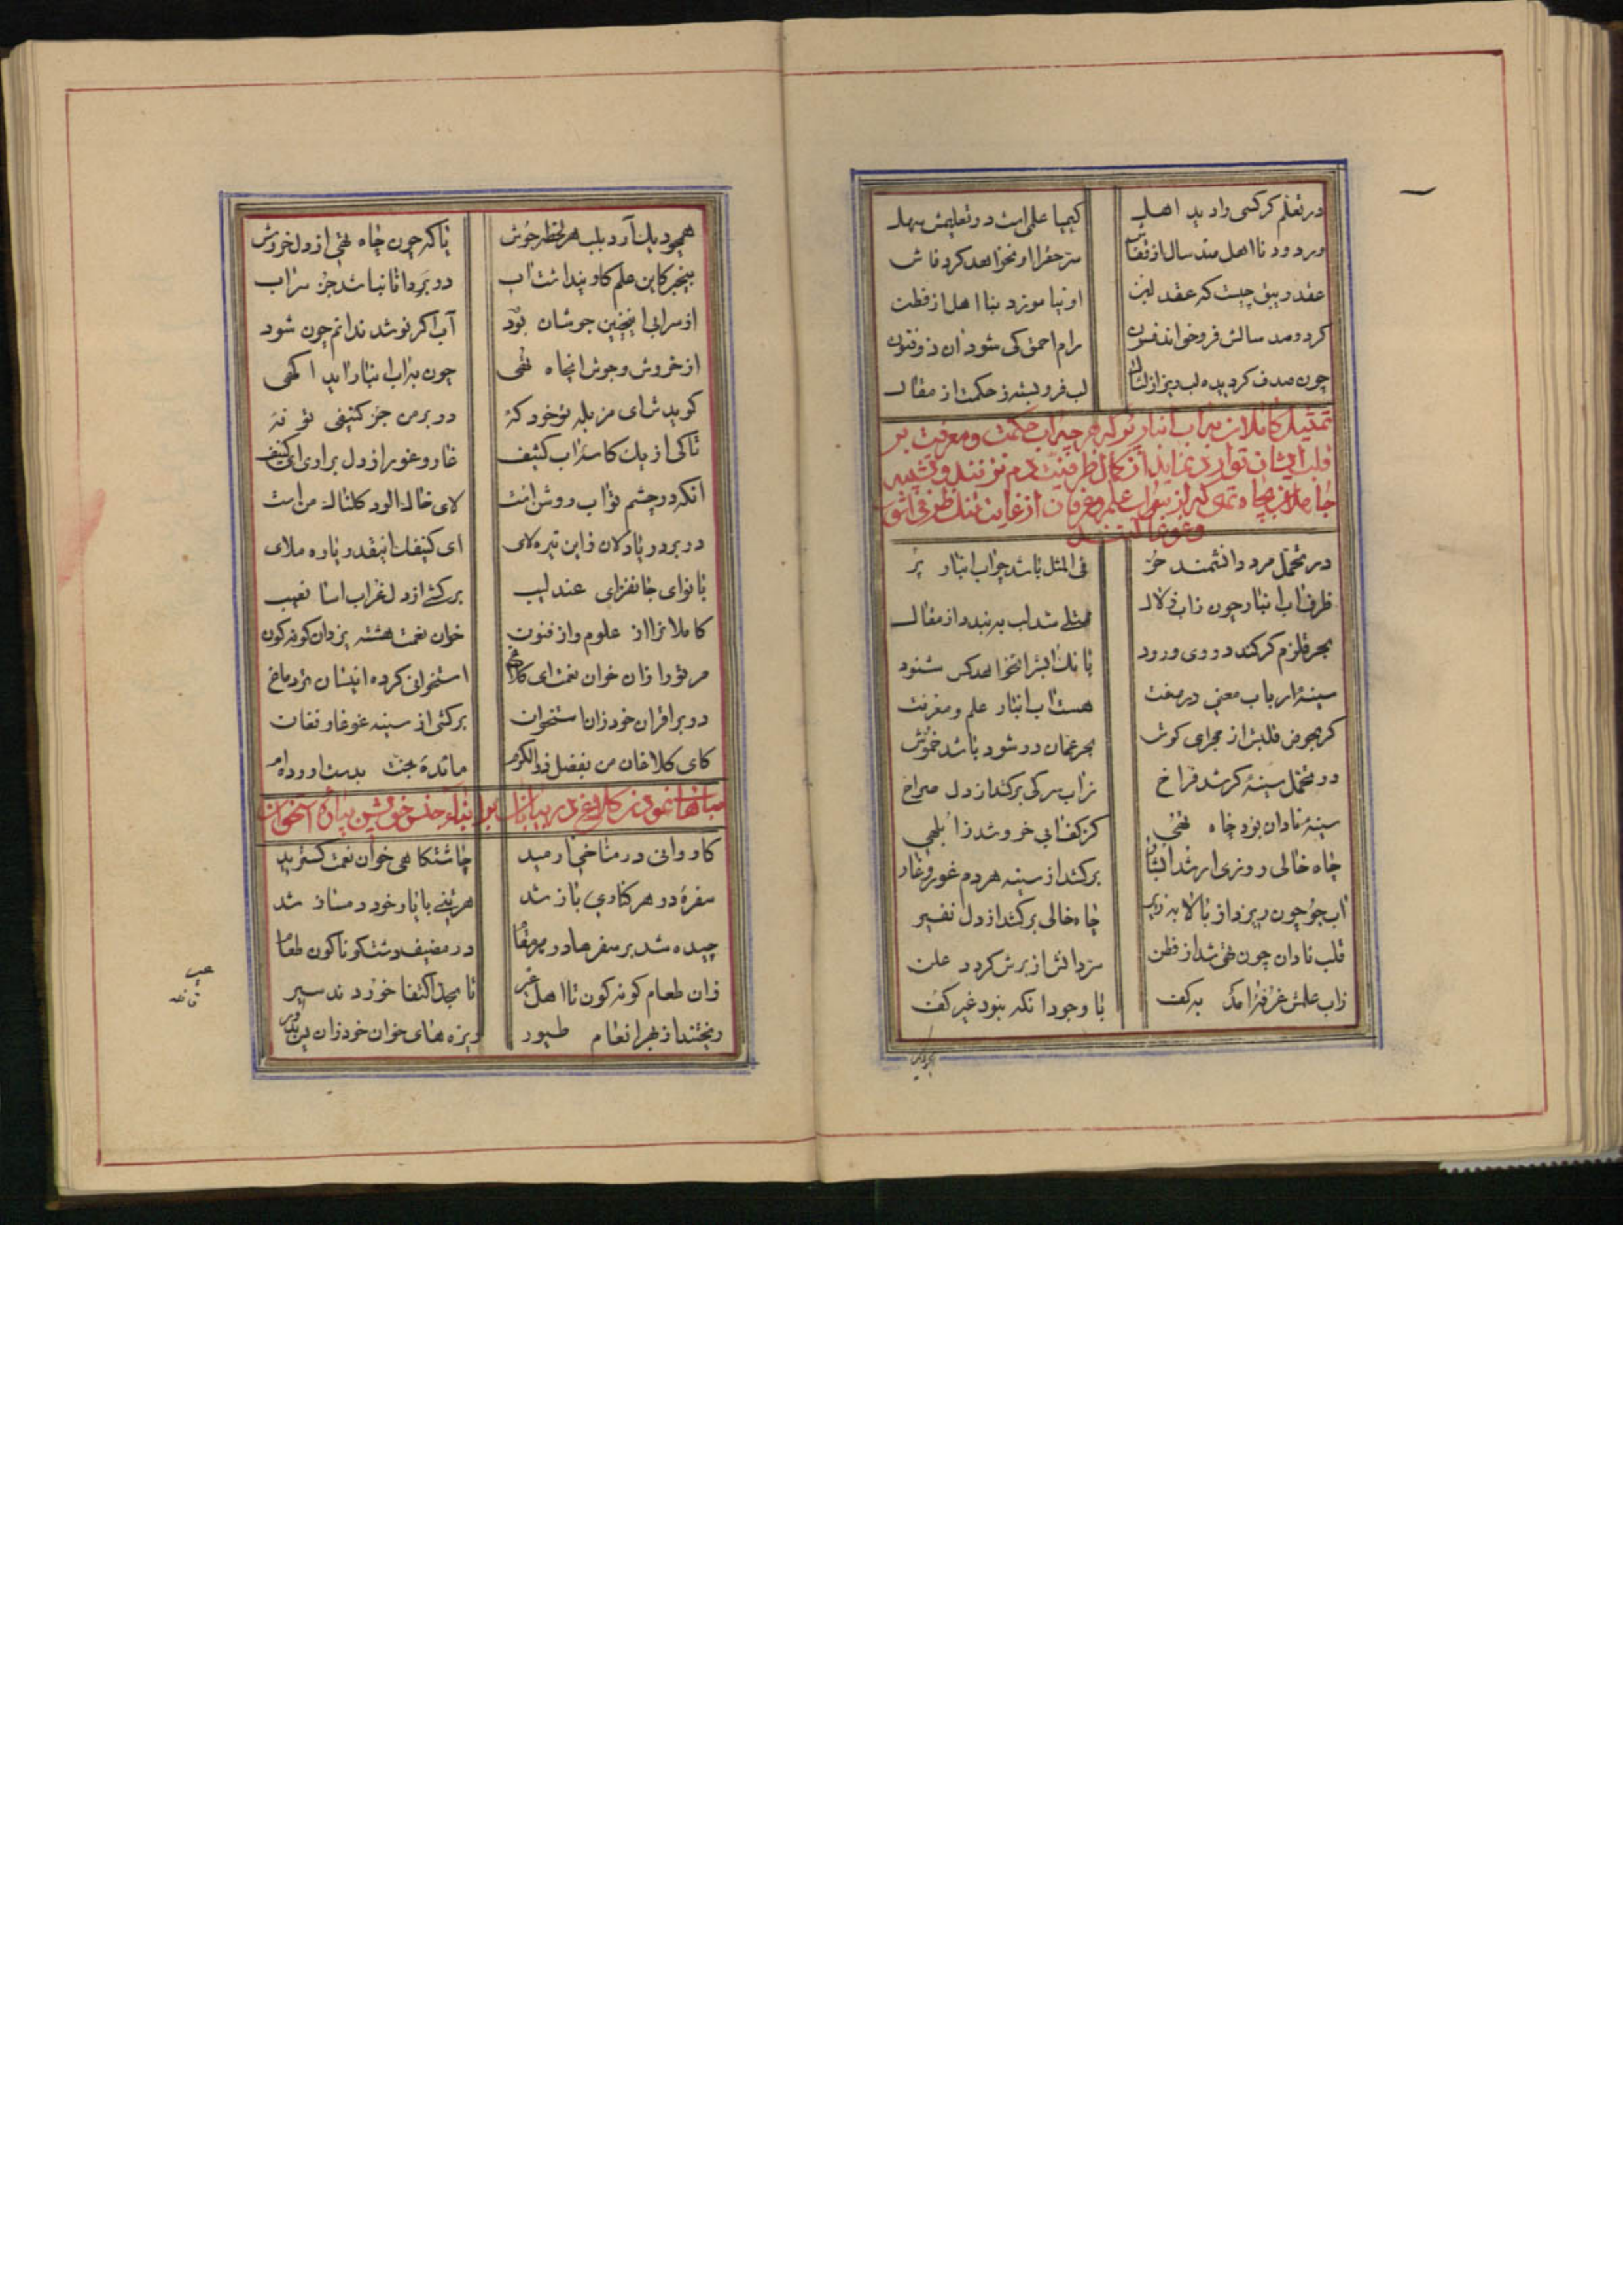 در تعلم گر کسی را دید اهل کیمیا علمی است در تعلیمش سهل
ور دود نااهل صد سال از قفاش سر حفرا او نخواهد کرد فاش
عقد زیبق چیست که عقد لبن او نیاموزد بنا اهل از فطن
گر دو صد سالش فرو خواند فسون رام احمق کی شود آن ذوفنون
چون صدف گردیده لب ریز از لئال لب فرو بسته ز حکمت از مقال
تمثیل کاملان بآب انبار پر که هر چه آب حکمت و معرفت بر
قلب ایشان توارد نماید از کمال ظرفیت دم نزنند و تشبیه
جاهلان بچاه تهی که از آب علم و عرفان از غایت تنک ظرفی
و غوغا کنند
در تحمل مرد دانشمند حر فی المثل باشد چو آب انبار پر
ظرف آب انبار چون ز آب زلال ممتلی شد لب به بندد از مقال
بحر قلزم گر کند در وی ورود بانک آبش را نخواهد کس شنود
سینهٔ ارباب معنی در صفت هست آب انبار علم و معرفت
گر بحوض قلبش از مجرای گوش بحر عمان در شود باشد خموش
در تحمل سینهٔ گر شد فراخ ز آب سرکی برکشد از دل صراخ
سینهٔ نادان بود چاه تهی کز کف آبی خروشد ز ابلهی
چاه خالی روزی ار شد آبشار برکشد از سینه هر دم غور و غار
آب جو چون ریزد از بالا بزیر چاه خالی برکشد از دل نفیر
قلب نادان چون تهی شد از فطن سر دانش از برش گردد علن
ز آب علمش غرفهٔ آمد به کف با وجود آنکه نبود غیر کف
همچو دیک آرد بلب هر لحظه جوش تا که چون چاه تهی از دل خروش
بیخبر کاین علم کاو پنداشت آب در بر دانا نباشد جز سراب
از سرابی اینچنین جوشان بود آب اگر نوشد ندانم چون شود
از خروش و جوش آنچاه تهی چون بآب انبار آید آگهی
گوید شای مزبله تو خود که در بر من جز کنیفی تو نه
تا کی از یک کاسه آب کثیف غار و غور از دل براری ای کنیف
آنکه در چشم تو آب روشن است لای خاک آلود کلثالهٔ من است
در بر دریا دلان زاین تیره لای ای کنیفک اینقدر یاوه ملای
با نوای جانفزای عندلیب برکشی از دل غراب آسا نعیب
کاملانرا از علوم و از فنون خوان نعمت هشته یزدان گونه گون
مر تو را زان خوان نعمت ای کلاغ استخوانی کرده ایشان تر دماغ
در بر اقران خود زان استخوان برکشی از سینه غوغا و فغان
کای کلاغان من بفضل ذوالکرم مائدهٔ جنت بدست آورده‌ام
مباهات نمودن کلاغی در بیابان بر ابناء جنس خویش بپاره استخوان
کاروانی در مناخی آرمید چاشتگاهی خوان نعمت گسترید
سفره در هر کناری باز شد هر تنی با یار خود دمساز شد
چیده شد بر سفرها در هر مقام در مضیف دشت گوناگون طعام
زان طعام گونه گون تا اهل خیر تا بحد اکتفا خوردند سیر
ریختند از بهر انعام طیور ریزه‌های خوان خود زان